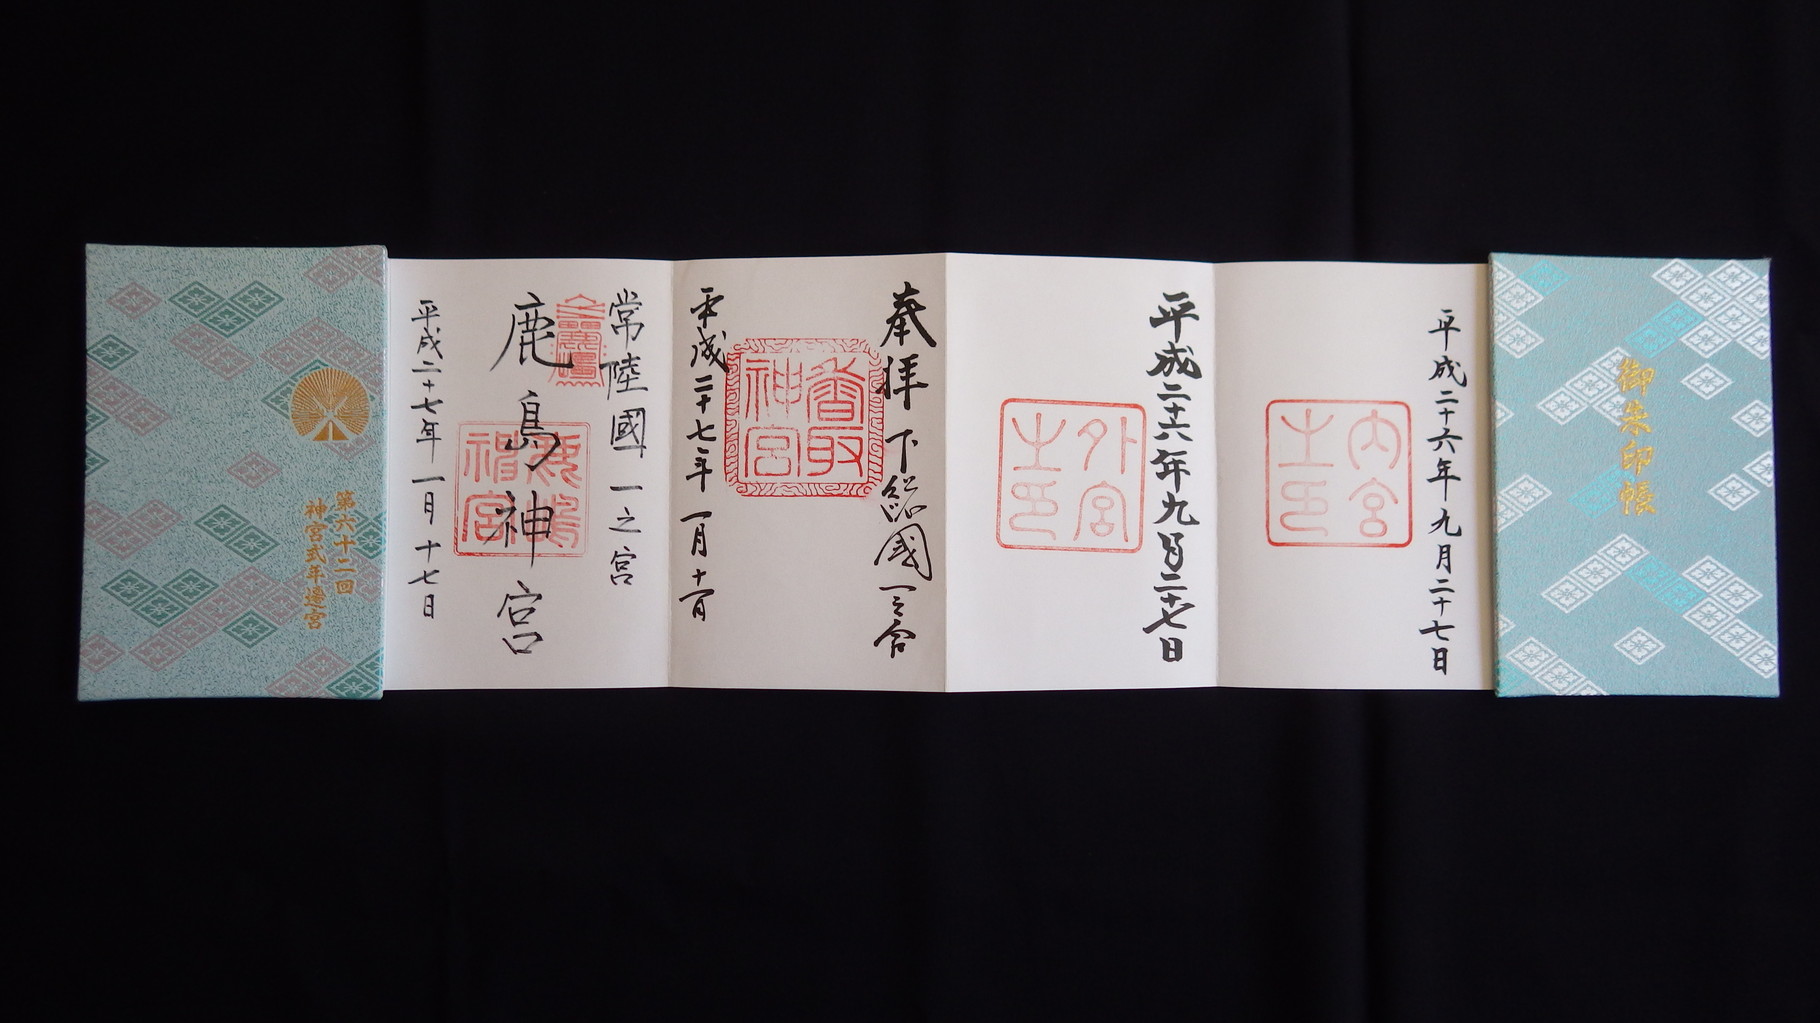 御朱印帳
平成二十六年九月二十七日
内宮
之印
平成二十六年九月二十七日
外宮
之印
奉拝 下総國一之宮
香取
神宮
平成二十七年一月
常陸國一之宮
鹿島神宮
鹿嶋
神宮
平成二十七年一月十七日
第六十二回
神宮式年遷宮